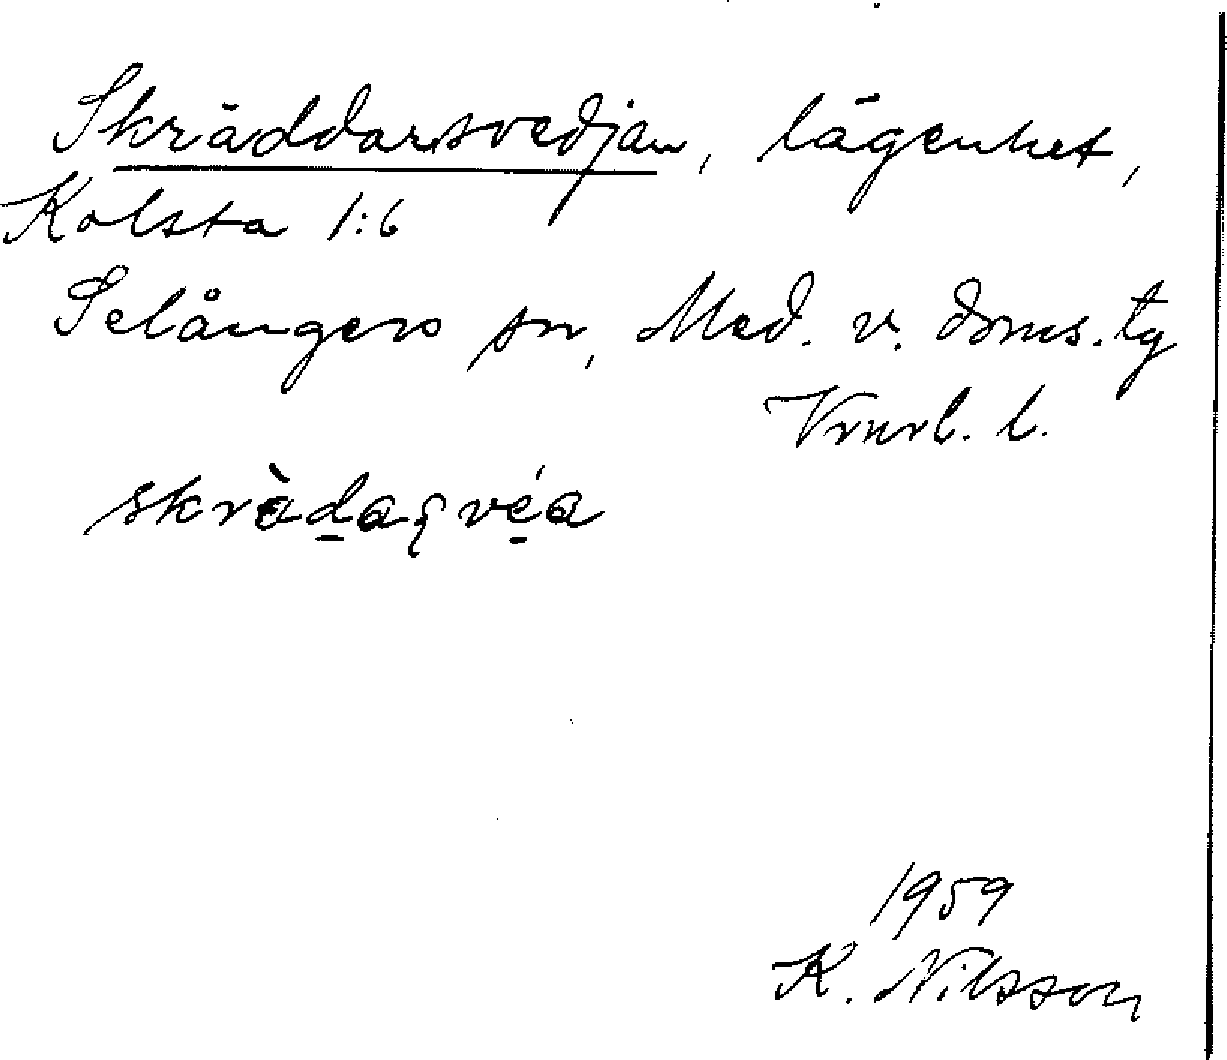 Skräddarsvedjan, lägenhet,
Kolsta 1:6
Selångers sn, Med. v. doms. tg
Vrnrl. l.
skrä̀da̠ʂvé̠a
1959
K. Nilsson